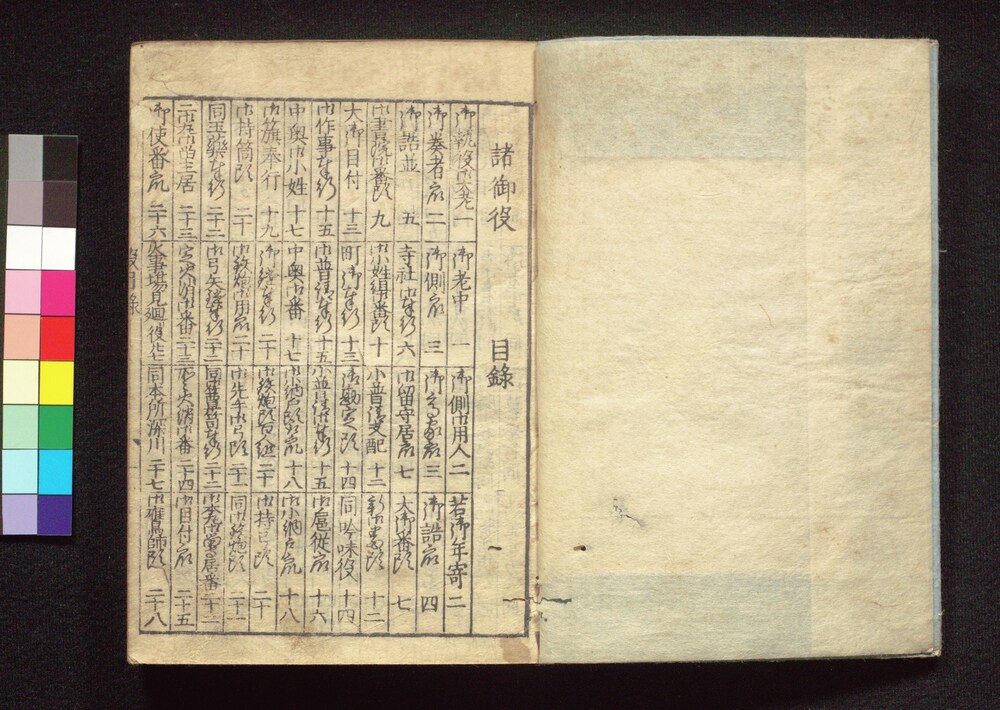 諸御役 目錄
御老中 一 御側御用人 二 若御年寄 二
御奏者衆 二 御側衆 三 御高家衆 三 御詰衆 四
御詰並 五 寺社御奉行 六 御留守居衆 七 大御番頭 七
御書院御番頭 九 御小姓組番頭 十 小普請支配 十二 新御番頭 十二
大御目付 十三 町御奉行 十三 御勘定頭 十四 同吟味役 十四
御作事奉行 十五 御普請奉行 十五 小普請御奉行 十五 御扈從衆 十六
中奥御小姓 十七 中奥御番 十七 御小納戸頭衆 十八 御小納戸衆 十八
御籏奉行 十九 御鎗奉行 二十 御鉄炮頭百人組 二十 御持弓頭 二十
御持筒頭 二十 御鉄炮御用衆 二十 御先手御弓頭 二十一 同御鉄炮頭 二十一
同玉藥奉行 二十二 御弓矢鎗奉行 二十二 同御具足奉行 二十二
二十三 定火消御番 二十三 火消御番 二十四 御目付衆 二十五
御使番衆 二十六 火事場見廻役 二十七 同本所深川 二十七 御鷹師頭 二十八